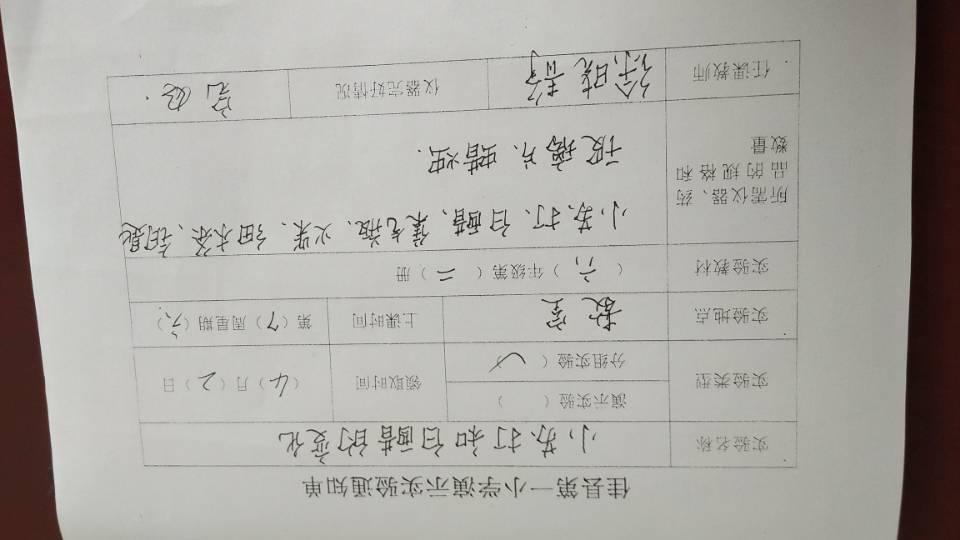 佳县第一小学演示实验通知单
实验名称 小苏打和白醋的变化
实验类型 演示实验（ ） 领取时间 （4）月（2）日
分组实验（✓）
实验地点 教室 上课时间 第（7）周星期（六）
实验教材 （六）年级第（二）册
所需仪器、药品的规格和数量 小苏打、白醋、集气瓶、火柴、细木条、钥匙
玻璃片、蜡烛.
任课教师 仪器完好情况 完好.